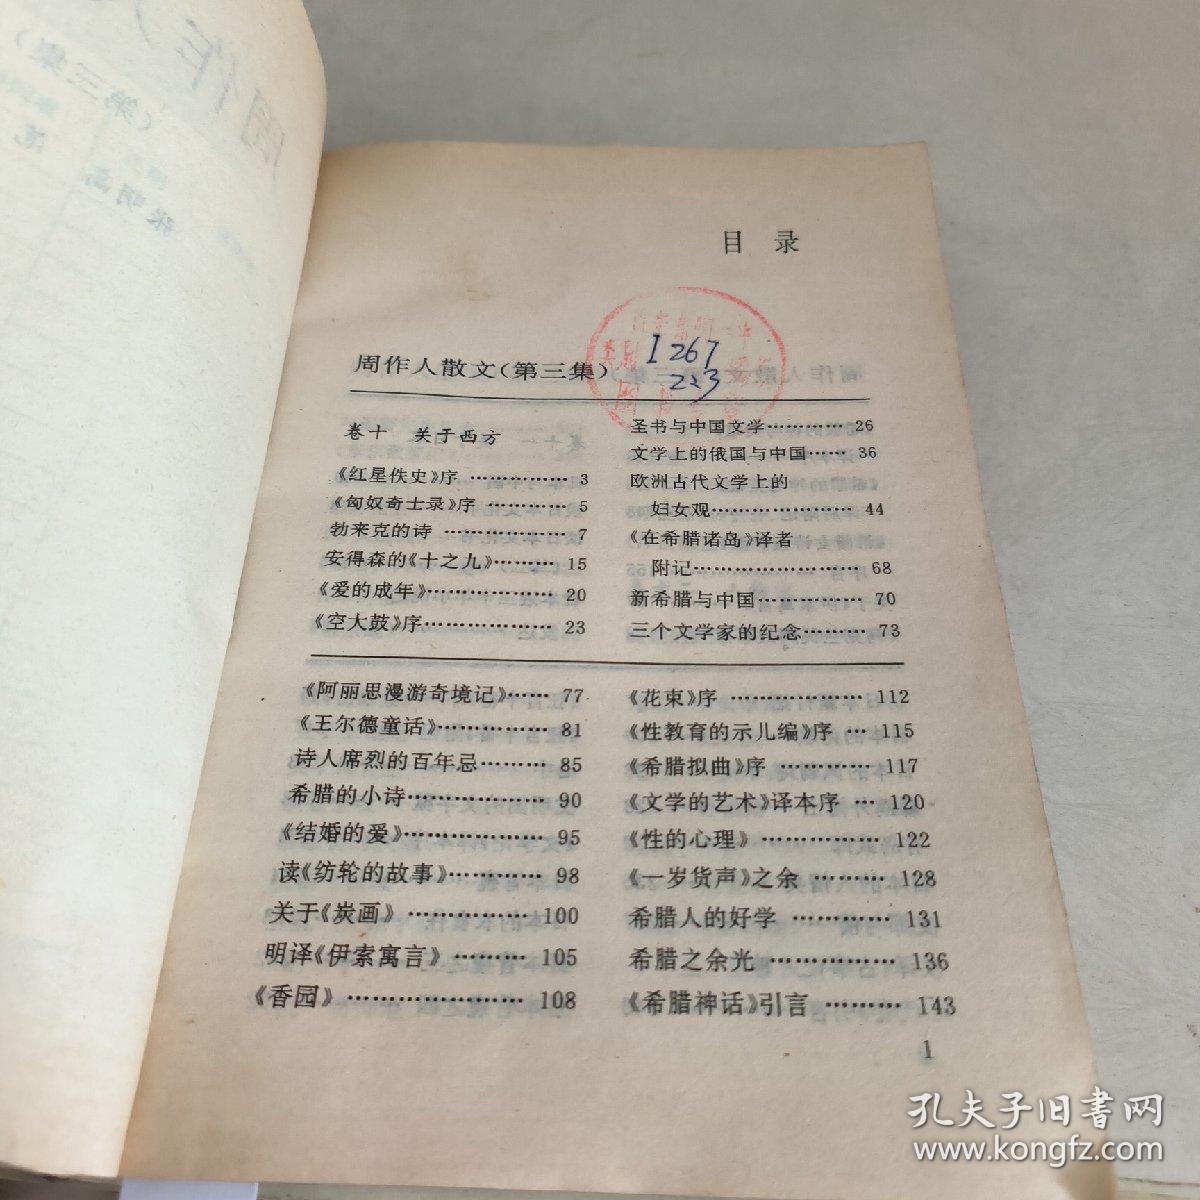 目 录
I267
223
周作人散文(第三集)
卷十 关于西方
《红星佚史》序 …………… 3
《匈奴奇士录》序 ………… 5
勃来克的诗 ……………… 7
安得森的《十之九》……… 15
《爱的成年》……………… 20
《空大鼓》序……………… 23
圣书与中国文学………… 26
文学上的俄国与中国…… 36
欧洲古代文学上的
妇女观………………… 44
《在希腊诸岛》译者
附记…………………… 68
新希腊与中国…………… 70
三个文学家的纪念……… 73
《阿丽思漫游奇境记》…… 77
《王尔德童话》…………… 81
诗人席烈的百年忌……… 85
希腊的小诗……………… 90
《结婚的爱》……………… 95
读《纺轮的故事》………… 98
关于《炭画》 …………… 100
明译《伊索寓言》 ……… 105
《香园》 ………………… 108
《花束》序 ……………… 112
《性教育的示儿编》序 … 115
《希腊拟曲》序 ………… 117
《文学的艺术》译本序 … 120
《性的心理》 …………… 122
《一岁货声》之余 ……… 128
希腊人的好学 ………… 131
希腊之余光 …………… 136
《希腊神话》引言 ……… 143
1
孔夫子旧书网
www.kongfz.com